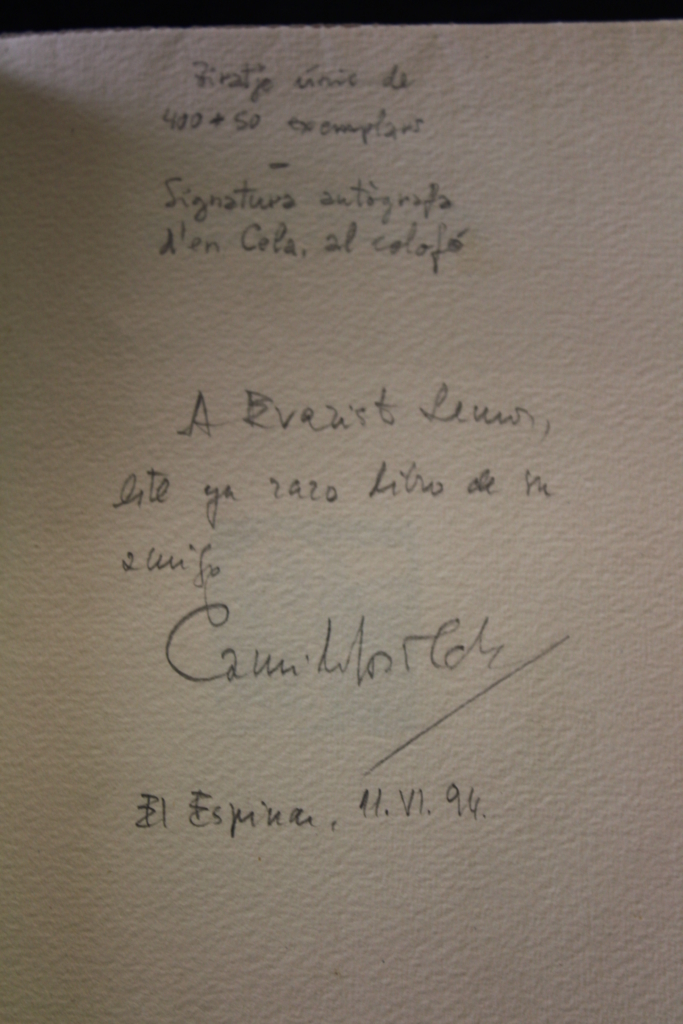 Tiratje únic de
400 + 50 exemplars
—
Signatura autògrafa
d'en Cela, al colofó
A Evarist
este ya raro libro de su
amigo
Camilo José Cela
El Espinar, 11.VI.94.